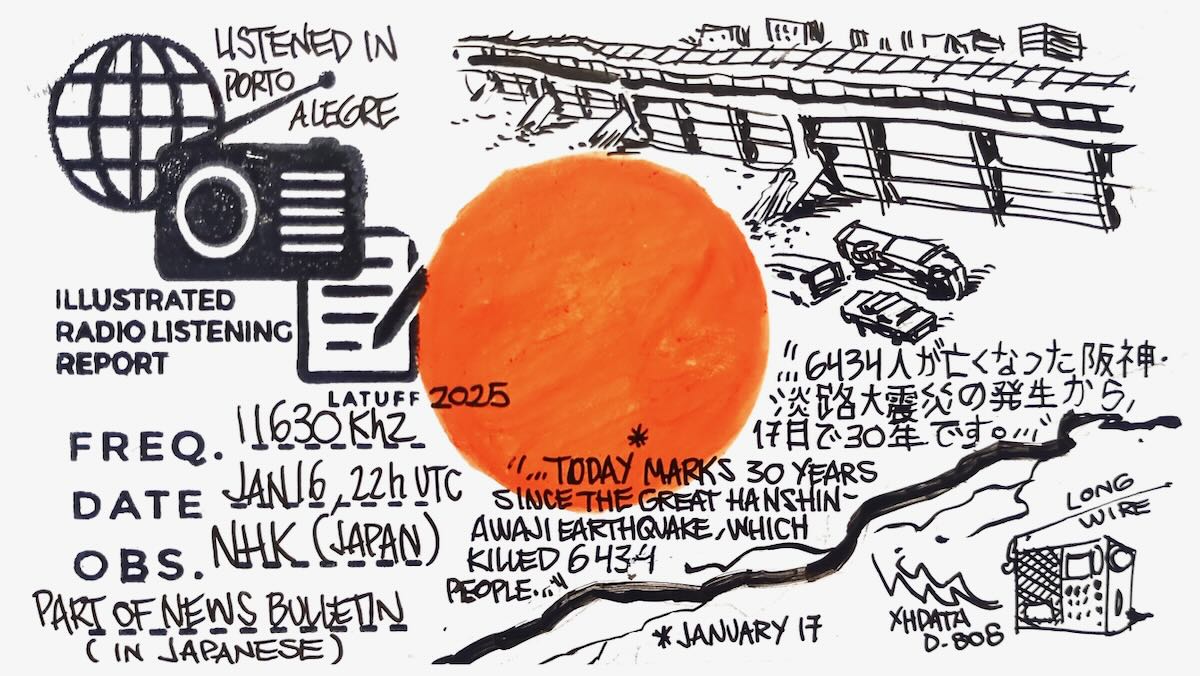 LISTENED IN
PORTO
ALEGRE
ILLUSTRATED
RADIO LISTENING
REPORT
LATUFF 2025
FREQ. 11630 Khz
DATE JAN 16, 22h UTC
OBS. NHK (JAPAN)
PART OF NEWS BULLETIN
(IN JAPANESE)
"6434人が亡くなった阪神・
淡路大震災の発生から、
17日で30年です。..."
*
"...TODAY MARKS 30 YEARS
SINCE THE GREAT HANSHIN-
AWAJI EARTHQUAKE, WHICH
KILLED 6434
PEOPLE..."
*JANUARY 17
LONG
WIRE
XHDATA
D-808